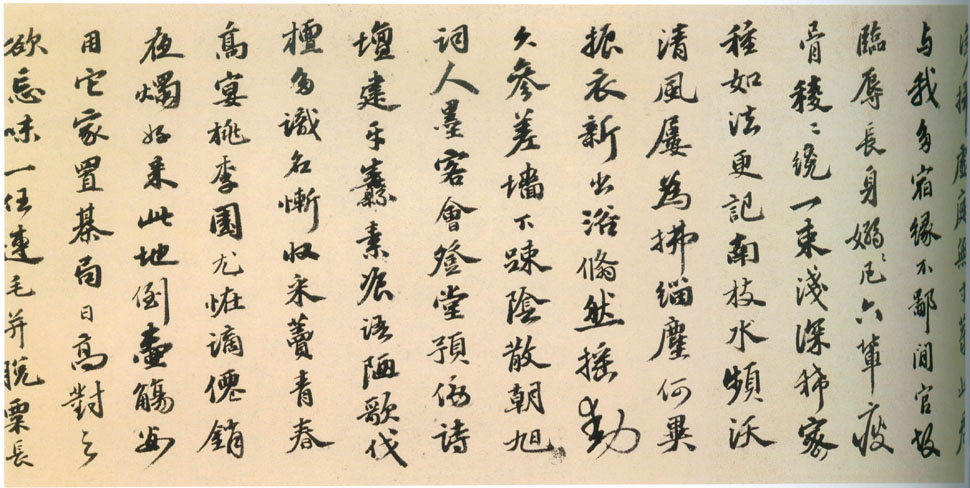 与我多宿缘不鄙閒官故
臨辱長身嫋〻凡六輩疲
骨稜〻繞一束淺深稀密
種如法更記南枝水頻沃
清風屢為拂緇塵何異
振衣新出浴翛然摇動
久參差墻下踈陰散朝旭
詞人墨客會登堂預詩
壇建牙纛素语陋歌伐
檀多識名慚收采青春
高宴桃李園尤恠谪僊銷
夜燭好来此地倒壺觴
用它家置棊局日高對之
欲忘味一任連毛并脱粟長